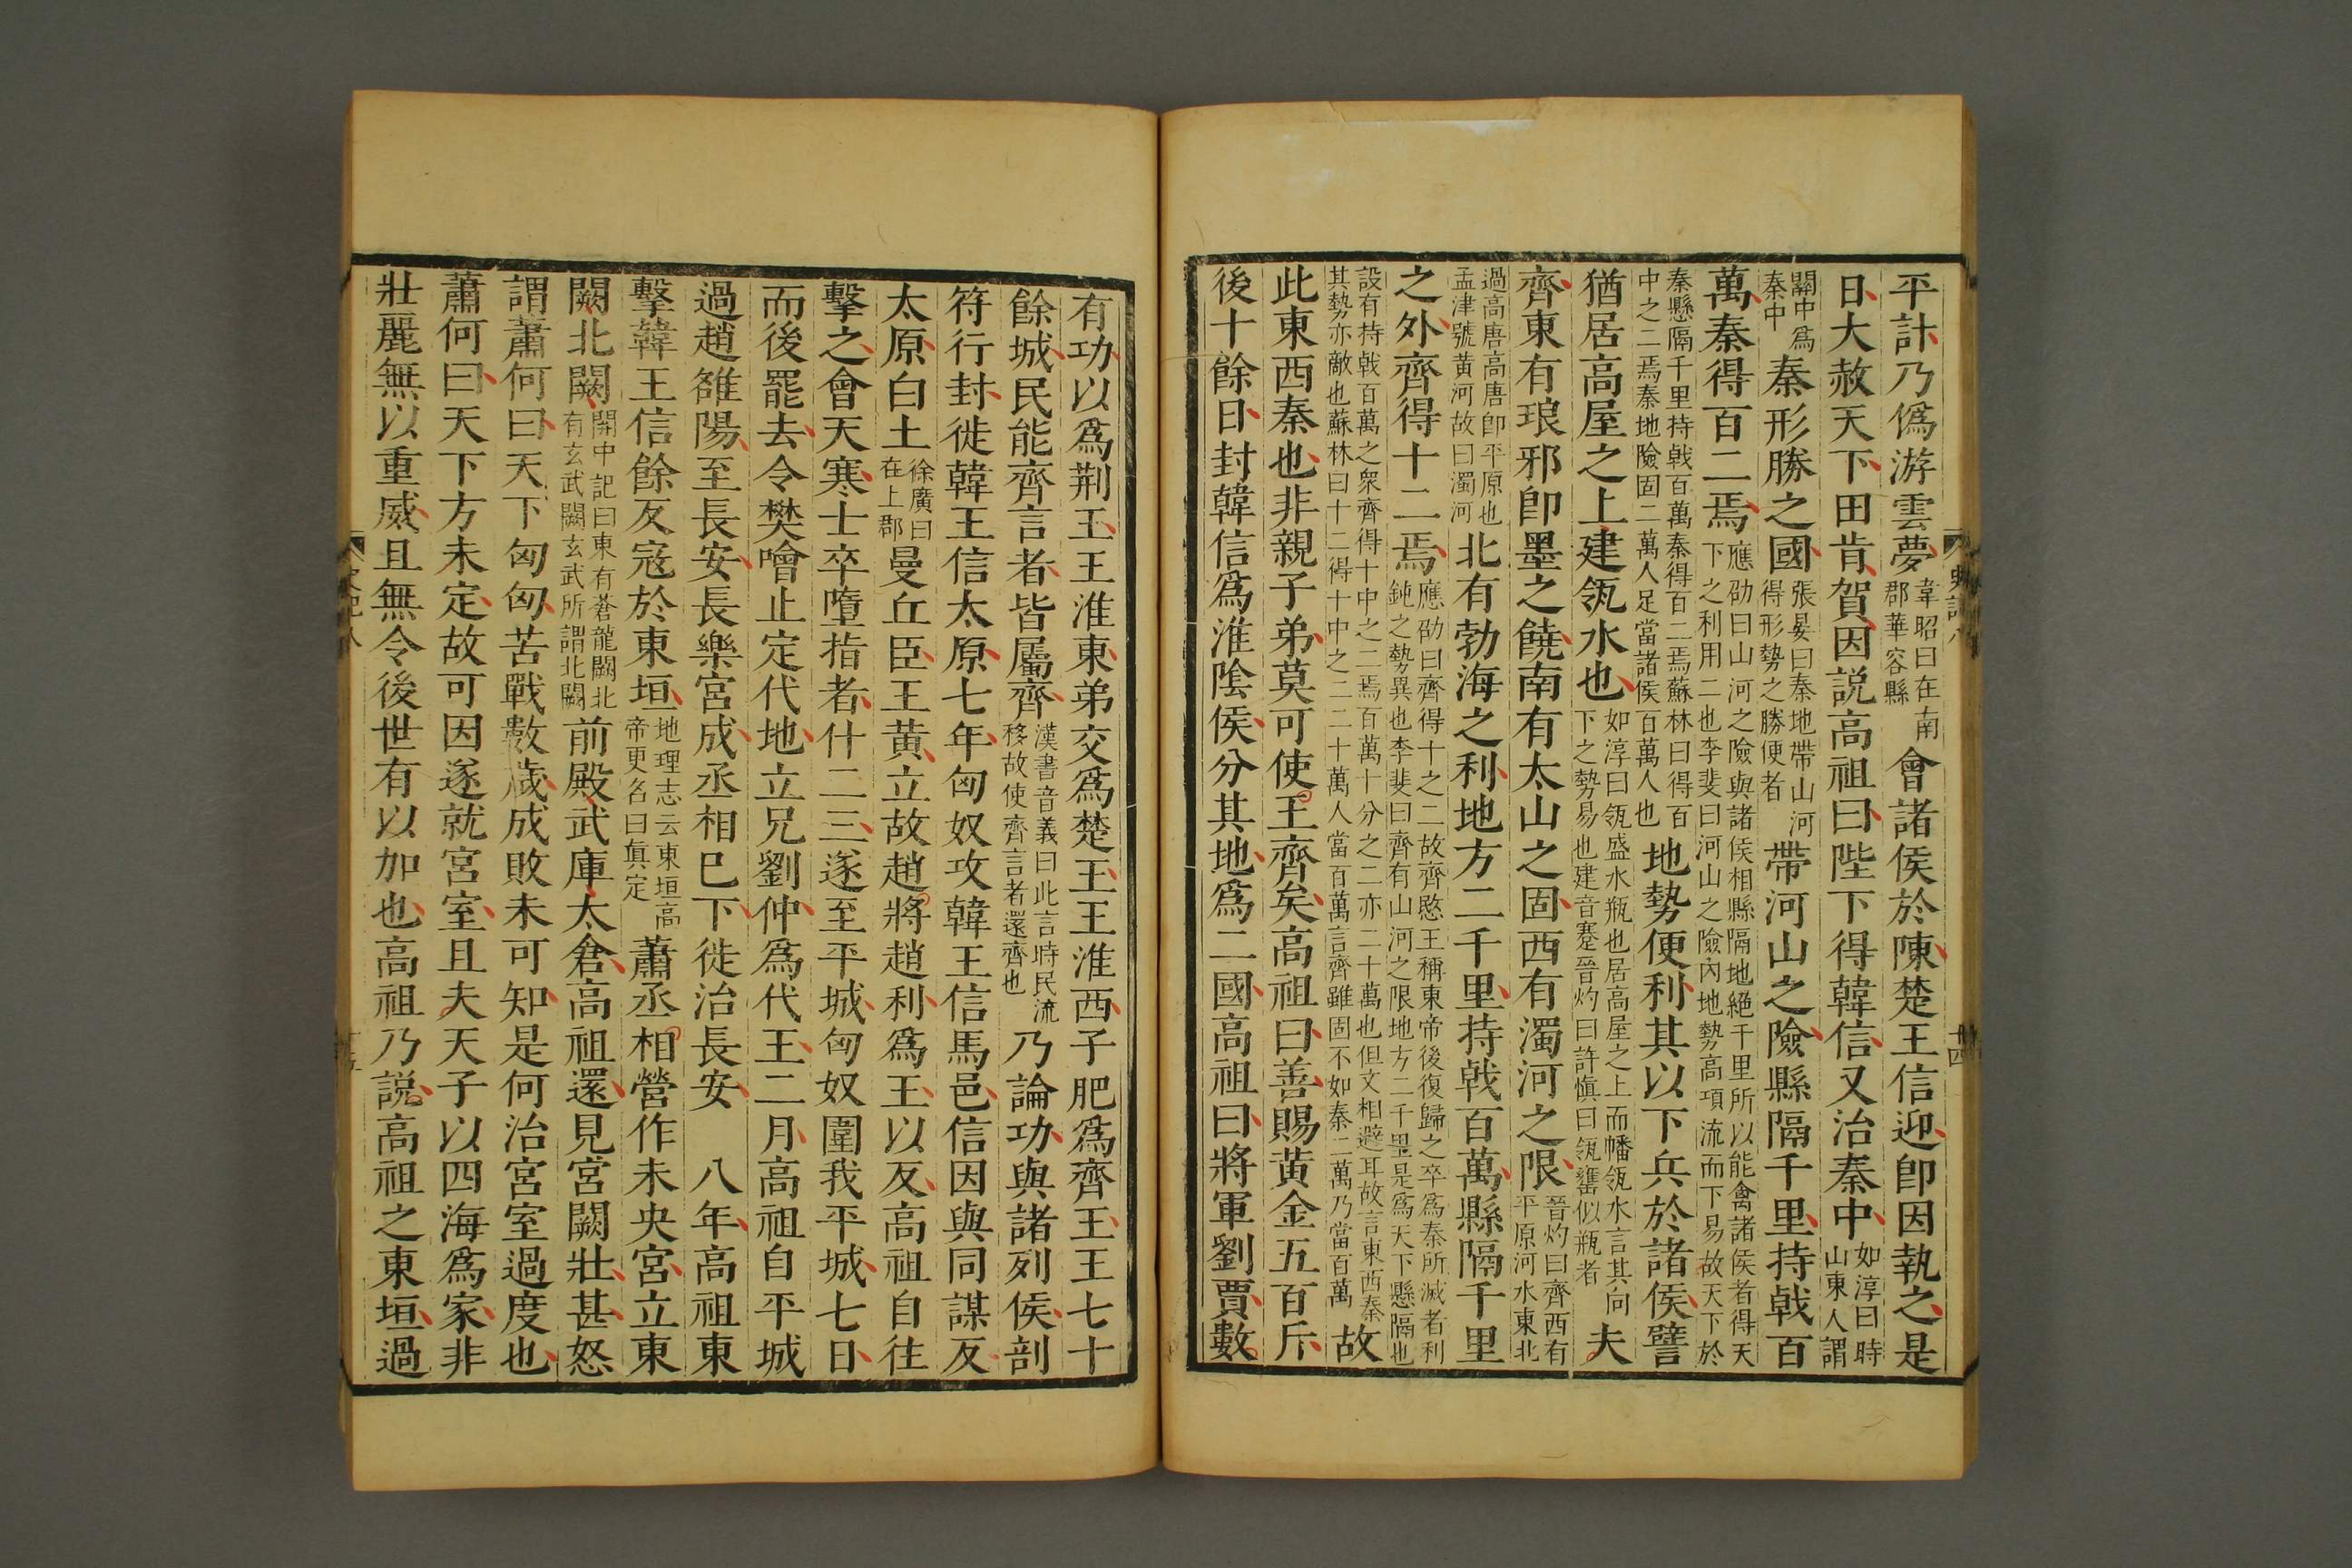 平計乃僞游雲夢韋昭曰在南郡華容縣會諸侯於陳楚王信迎卽因執之是
日大赦天下田肯賀因説高祖曰陛下得韓信又治秦中如淳曰時山東人謂
關中爲秦中秦形勝之國張晏曰秦地帶山河得形勢之勝便者帶河山之險縣隔千里持戟百
萬秦得百二焉應劭曰山河之險與諸侯相縣隔地絶千里所以能禽諸侯者得天下之利用二也李斐曰河山之險內地勢高項流而下易故天下於
秦懸隔千里持戟百萬秦得百二焉蘇林曰得百中之二焉秦地險固二萬人足當諸侯百萬人也地勢便利其以下兵於諸侯譬
猶居高屋之上建瓴水也如淳曰瓴盛水瓶也居高屋之上而幡瓴水言其向下之勢易也建音蹇晉灼曰許愼曰瓴甕似瓶者夫
齊東有琅邪卽墨之饒南有太山之固西有濁河之限晉灼曰齊西有平原河水東北
過高唐高唐卽平原也孟津號黃河故曰濁河北有勃海之利地方二千里持戟百萬縣隔千里
之外齊得十二焉應劭曰齊得十之二故齊愍王稱東帝後復歸之卒爲秦所滅者利鈍之勢異也李斐曰齊有山河之限地方二千里是爲天下懸隔也
設有持戟百萬之衆齊得十中之二焉百萬十分之二亦二十萬也但文相避耳故言東西秦其勢亦敵也蘇林曰十二得十中之二二十萬人當百萬言齊雖固不如秦二萬乃當百萬故
此東西秦也非親子弟莫可使王齊矣高祖曰善賜黃金五百斤
後十餘日封韓信爲淮陰侯分其地爲二國高祖曰將軍劉賈數
史記八
廿四
有功以爲荆王王淮東弟交爲楚王王淮西子肥爲齊王王七十
餘城民能齊言者皆屬齊漢書音義曰此言時民流移故使齊言者還齊也乃論功與諸列侯剖
符行封徙韓王信太原七年匈奴攻韓王信馬邑信因與同謀反
太原白土徐廣曰在上郡曼丘臣王黃立故趙將趙利爲王以反高祖自往
擊之會天寒士卒墮指者什二三遂至平城匈奴圍我平城七日
而後罷去令樊噲止定代地立兄劉仲爲代王二月高祖自平城
過趙雒陽至長安長樂宮成丞相巳下徙治長安 八年高祖東
擊韓王信餘反寇於東垣地理志云東垣高帝更名曰眞定蕭丞相營作未央宮立東
闕北闕關中記曰東有蒼龍闕北有玄武闕玄武所謂北闕前殿武庫太倉高祖還見宮闕壯甚怒
謂蕭何曰天下匈匈苦戰數歲成敗未可知是何治宮室過度也
蕭何曰天下方未定故可因遂就宮室且夫天子以四海爲家非
壯麗無以重威且無令後世有以加也高祖乃説高祖之東垣過